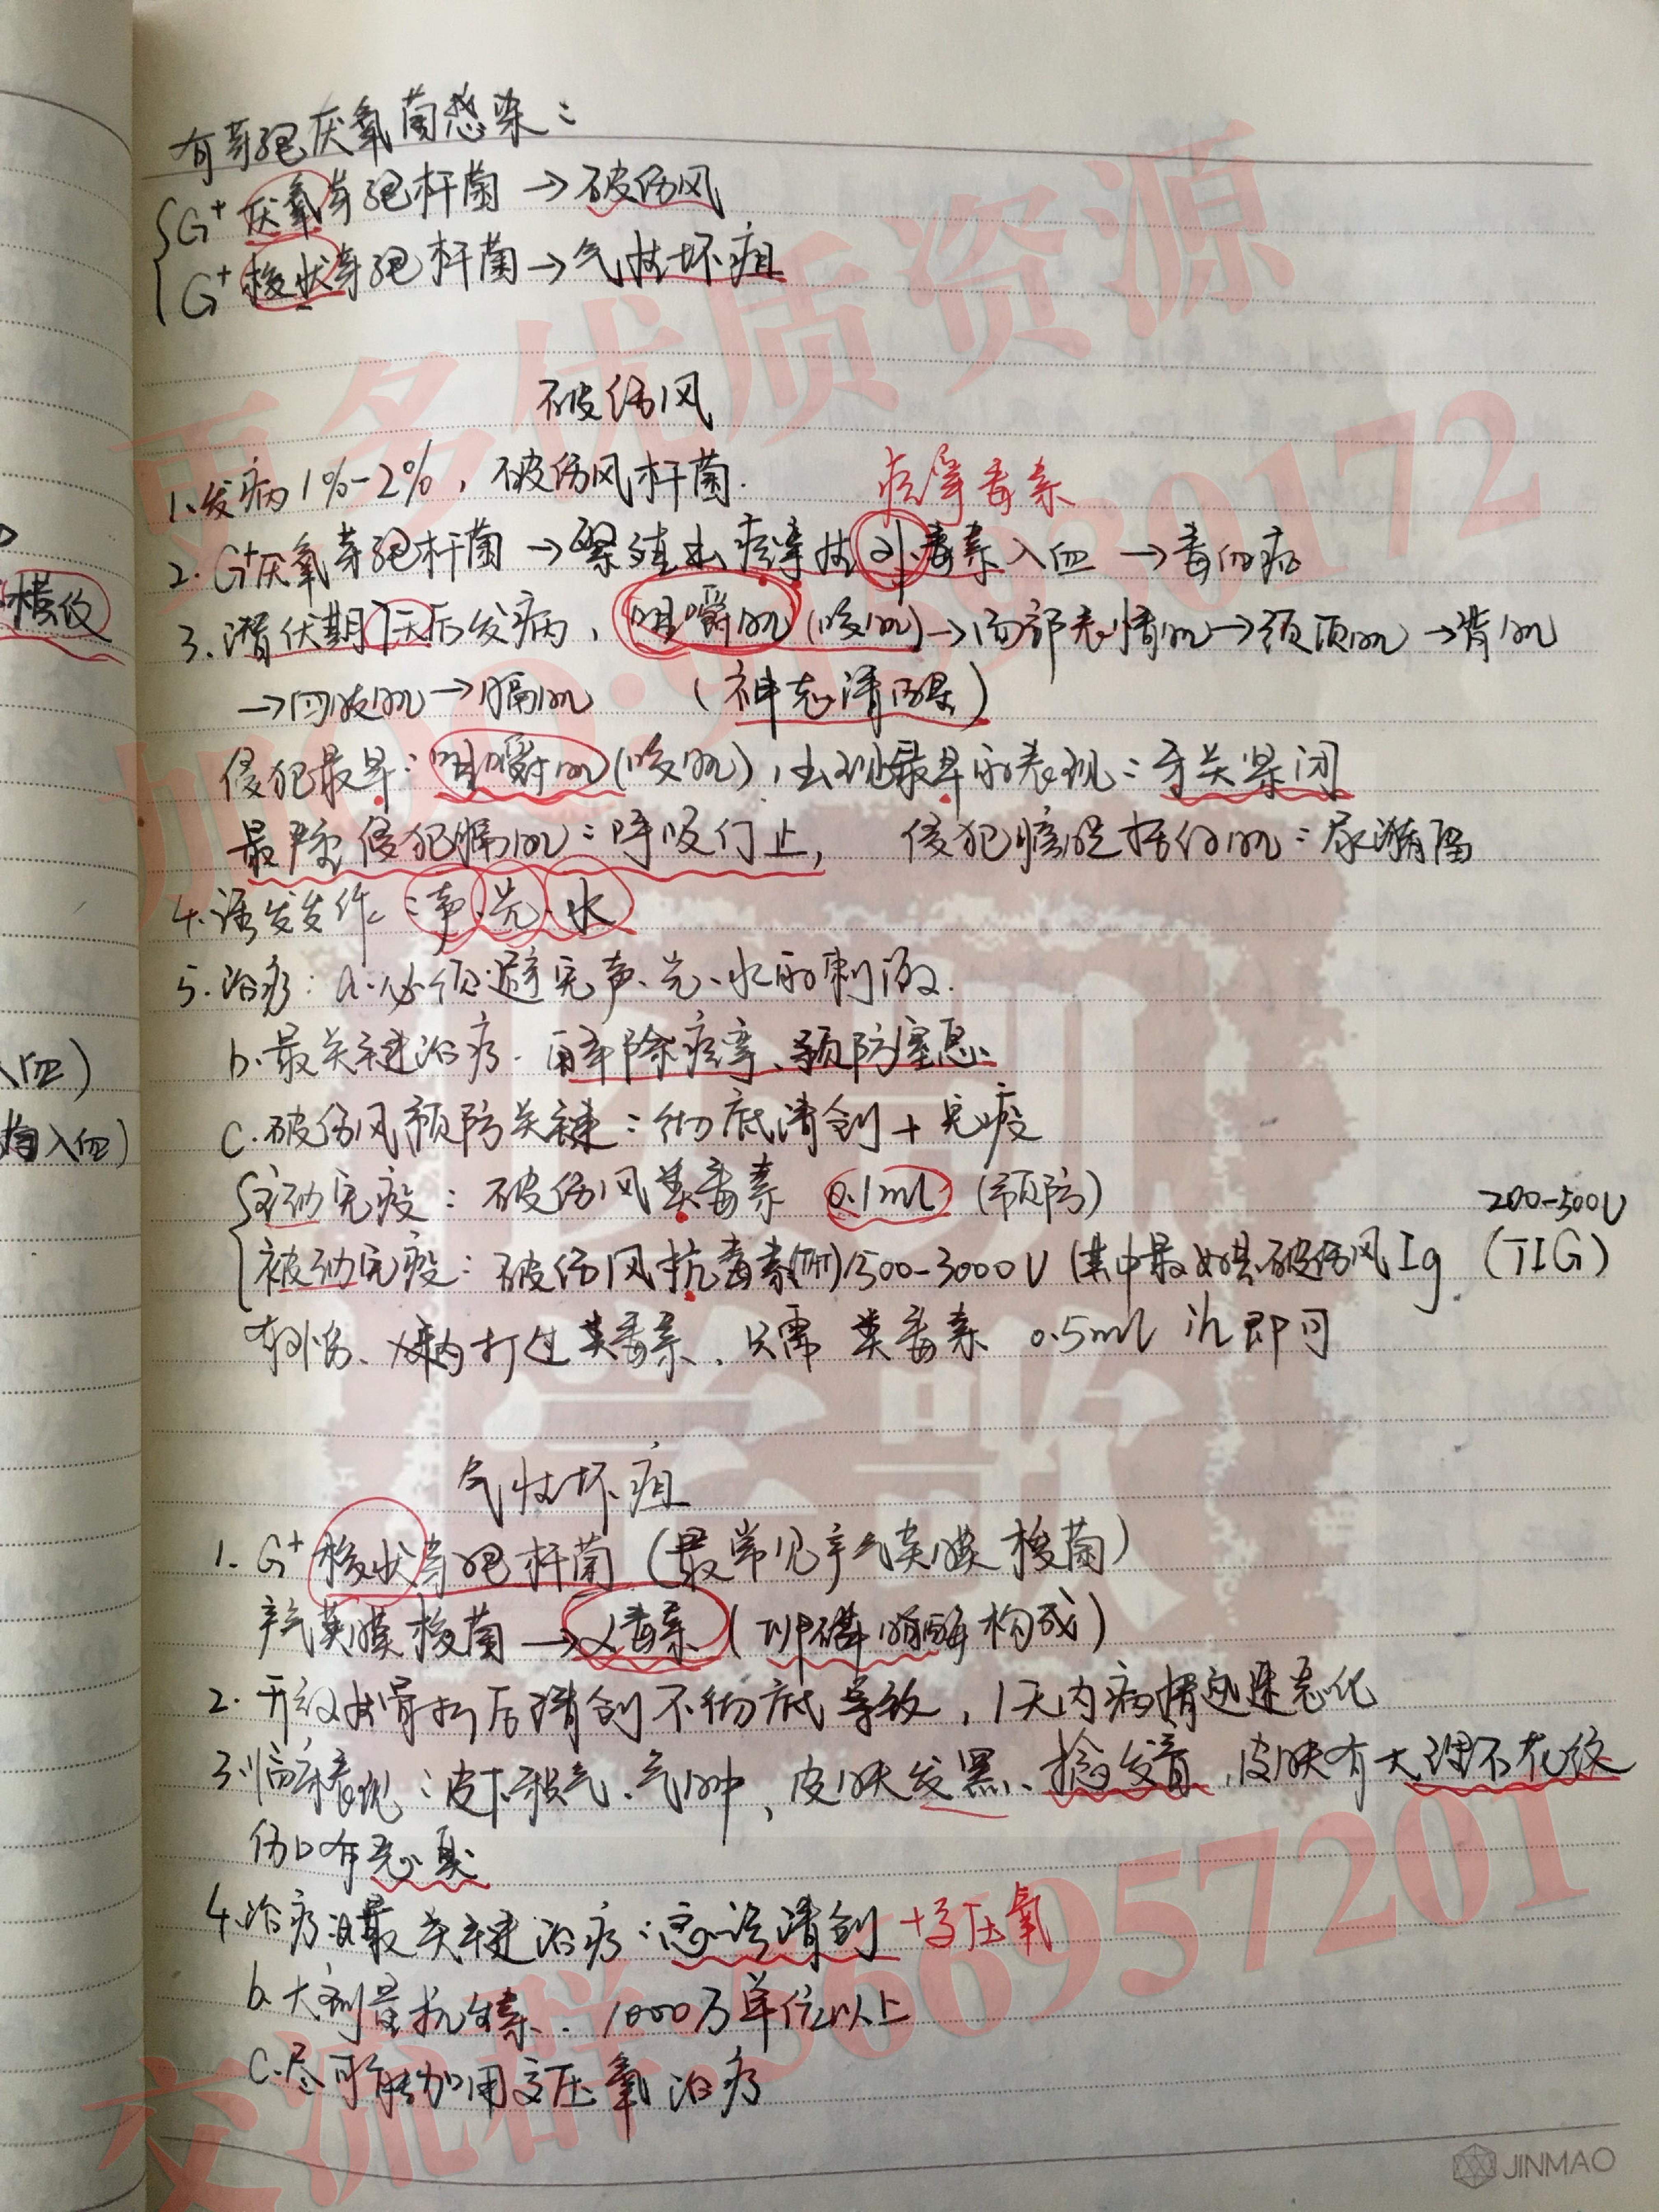 有芽孢厌氧菌感染：
G+厌氧芽孢杆菌→破伤风
G+梭状芽孢杆菌→气性坏疽
破伤风
1.发病1%-2%，破伤风杆菌.
痉挛毒素
2.G+厌氧芽孢杆菌→繁殖出痉挛性外毒素入血→毒血症
3.潜伏期7天后发病，咀嚼肌(咬肌)→面部表情肌→颈项肌→背肌
→四肢肌→膈肌 (神志清醒)
侵犯最早：咀嚼肌(咬肌)，出现最早的表现：牙关紧闭
最严重侵犯膈肌：呼吸停止， 侵犯膀胱括约肌：尿潴留
4.诱发发作：声、光、水
5.治疗：a.必须避免声、光、水的刺激.
b.最关键治疗.解除痉挛、预防窒息、
c.破伤风预防关键：彻底清创+免疫
主动免疫：破伤风类毒素 0.1ml (预防)
200-500U
被动免疫：破伤风抗毒素(TAT)1500-3000U (其中最好是破伤风Ig (TIG)
有外伤、 内打过类毒素、只需 类毒素 0.5ml 即可
气性坏疽
1. G+梭状芽孢杆菌(最常见产气荚膜梭菌)
产气荚膜梭菌→α毒素(卵磷脂酶构成)
2.开放性骨折后清创不彻底导致，1天内病情迅速恶化
3.临床表现：皮下积气、气肿，皮肤发黑、捻发音，皮肤有大理石花纹
伤口有恶臭
4.治疗：a.最关键治疗：急诊清创+高压氧
b.大剂量抗生素、1000万单位以上
c.尽可能加用高压氧治疗
横纹
入血)
入血)
更多优质资源
交流群:566957201
JINMAO